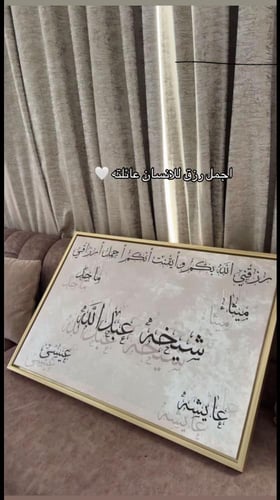 اجمل رزق للانسان عائلته 🤍
رزقني الله بكم وأيقنت أنكم أجمل أرزاقي
ماجد
ميثاء
شيخه عبدالله
عيسى
عايشه